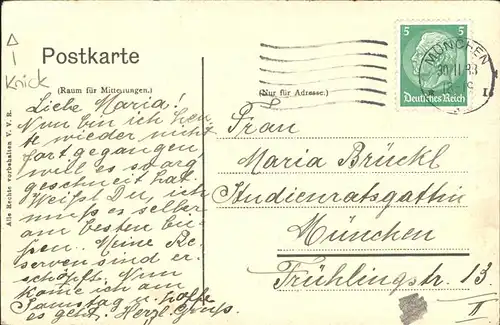 Knick
Postkarte
(Raum für Mitteilungen.)
(Nur für Adresse.)
5
5
Deutsches Reich
MÜNCHEN
Alle Rechte vorbehalten V. V. K.
Liebe Maria!
Nun bin ich heu-
te wieder nicht
fortgegangen,
weil es so arg
geschneit hat.
Weißt Du, ich
muß es selber
am besten bü-
ßen. Meine Re-
serven sind er-
schöpft. Nun
komme ich am
Samstag u. hoffe
es geht. Herzl. Gruß.
Frau
Maria Brückl
Studienratsgattin
München
Frühlingstr. 13.
II